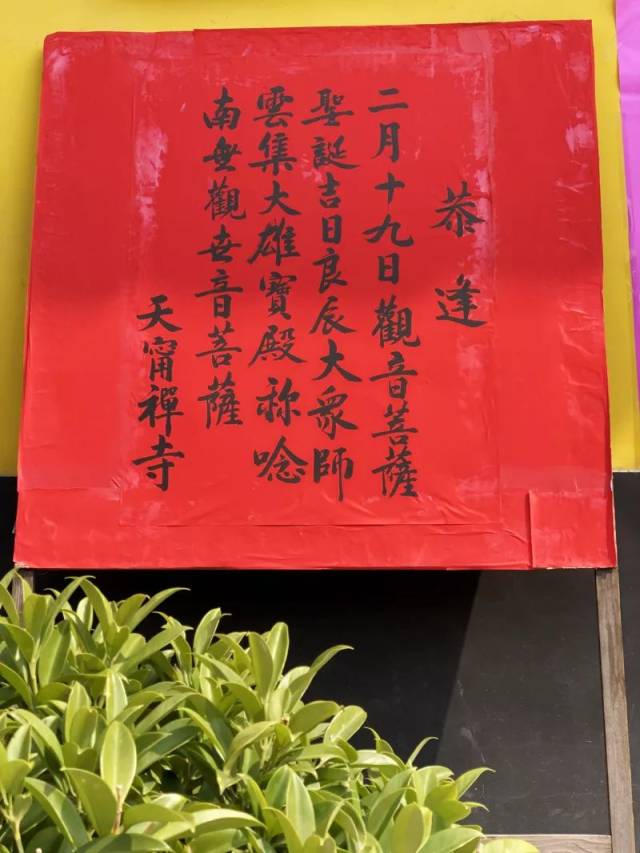 恭逢
二月十九日觀音菩薩
聖誕吉日良辰大衆師
雲集大雄寶殿称唸
南無觀世音菩薩
天甯禪寺